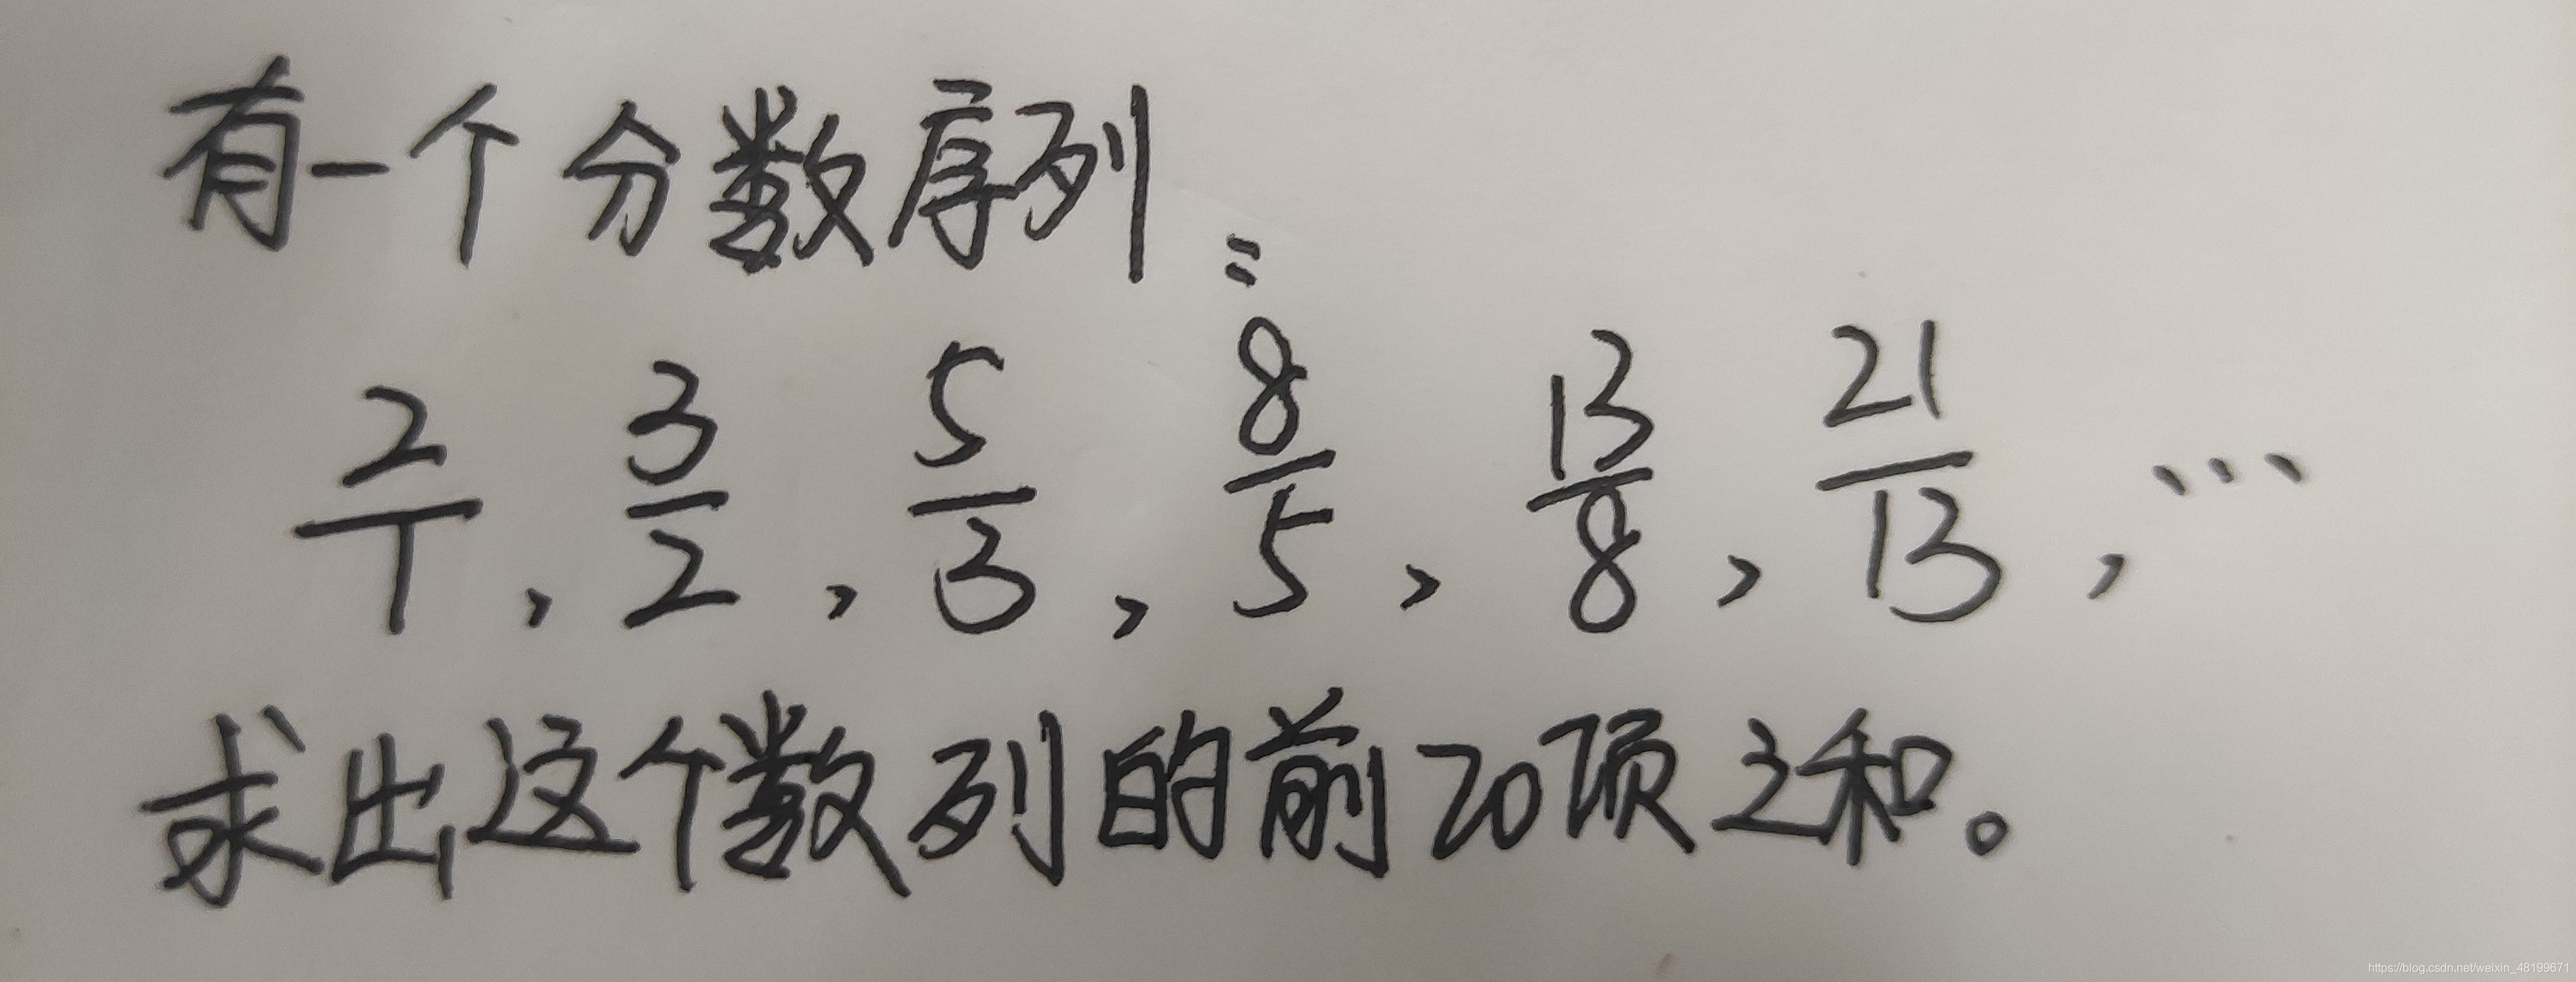 有一个分数序列:
2/1, 3/2, 5/3, 8/5, 13/8, 21/13, ...
求出这个数列的前20项之和。
https://blog.csdn.net/weixin_48199671